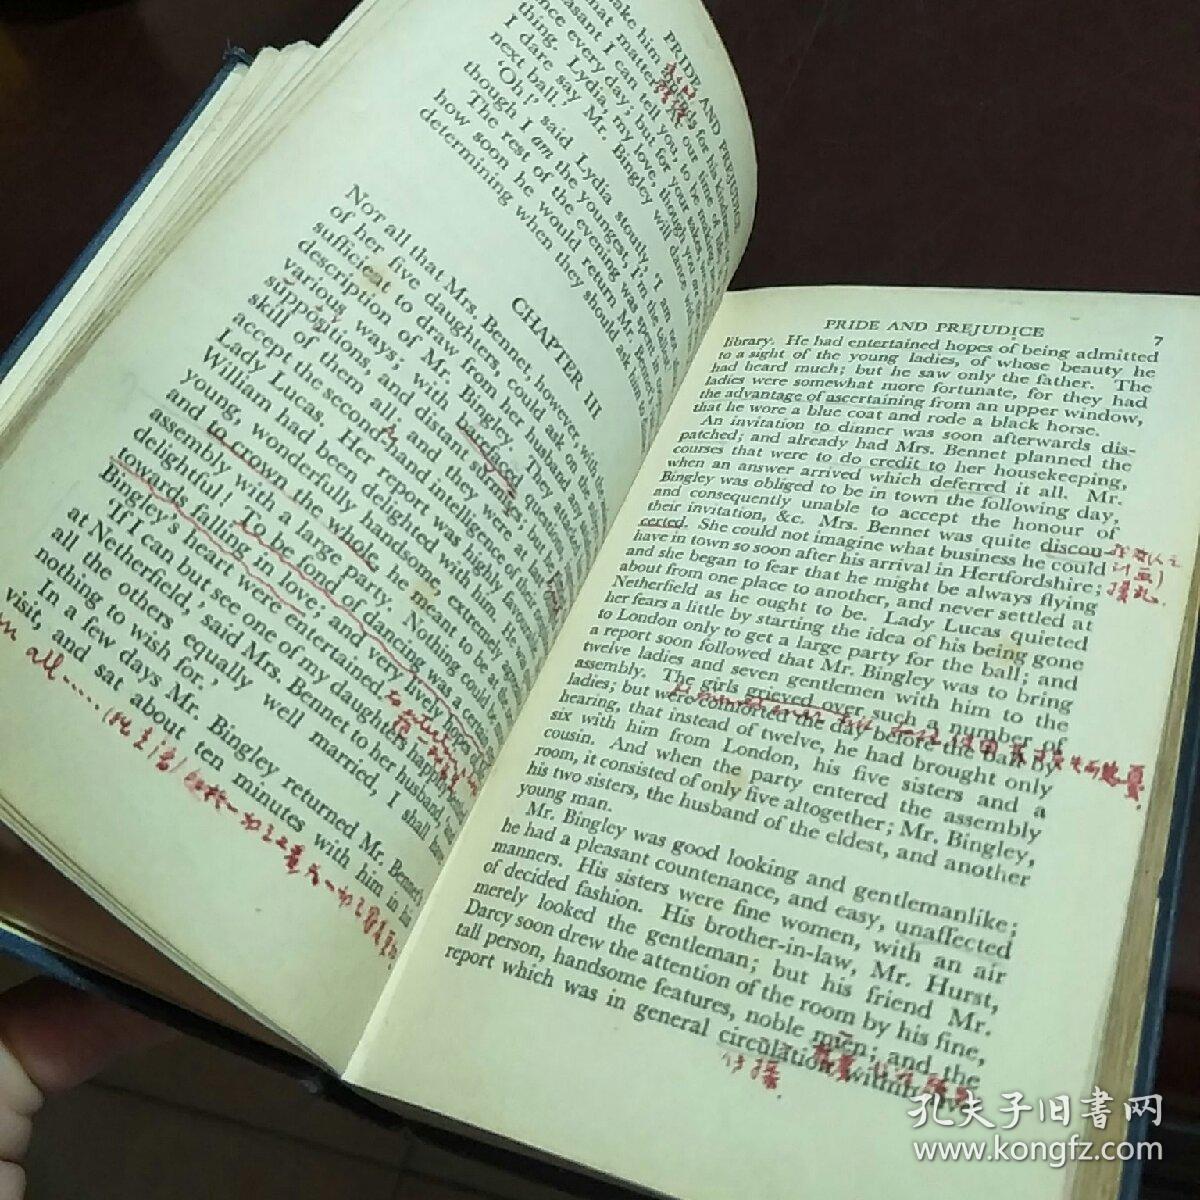 PRIDE AND PREJUDICE
ake him
matter
for his kin
asant I can tell you, to be
nce every day; but for your sakes
thing. Lydia, my love, though you are
I dare say Mr. Bingley will dance wi
next ball.'
'Oh!' said Lydia stoutly, 'I am
though I am the youngest, I'm the talle
The rest of the evening was spent in
how soon he would return Mr. Benne
determining when they should ask him to
CHAPTER III
NOT all that Mrs. Bennet, however, with the
of her five daughters, could ask on the
sufficient to draw from her husband any
description of Mr. Bingley. They attacked
various ways; with barefaced questions,
suppositions, and distant surmises; but he
skill of them all; and they were at last
accept the second-hand intelligence of their
Lady Lucas. Her report was highly favourable
William had been delighted with him. He was
young, wonderfully handsome, extremely agreea
and to crown the whole, he meant to be at the
assembly with a large party. Nothing could be
delightful! To be fond of dancing was a certain
towards falling in love; and very lively hopes
Bingley's heart were entertained.
'If I can but see one of my daughters happily
at Netherfield,' said Mrs. Bennet to her husband, 'and
all the others equally well married, I shall have
nothing to wish for.'
In a few days Mr. Bingley returned Mr. Bennet's
visit, and sat about ten minutes with him in his
all....
PRIDE AND PREJUDICE 7
library. He had entertained hopes of being admitted
to a sight of the young ladies, of whose beauty he
had heard much; but he saw only the father. The
ladies were somewhat more fortunate, for they had
the advantage of ascertaining from an upper window,
that he wore a blue coat and rode a black horse.
An invitation to dinner was soon afterwards dis-
patched; and already had Mrs. Bennet planned the
courses that were to do credit to her housekeeping,
when an answer arrived which deferred it all. Mr.
Bingley was obliged to be in town the following day,
and consequently unable to accept the honour of
their invitation, &c. Mrs. Bennet was quite discon-
certed. She could not imagine what business he could
have in town so soon after his arrival in Hertfordshire;
and she began to fear that he might be always flying
about from one place to another, and never settled at
Netherfield as he ought to be. Lady Lucas quieted
her fears a little by starting the idea of his being gone
to London only to get a large party for the ball; and
a report soon followed that Mr. Bingley was to bring
twelve ladies and seven gentlemen with him to the
assembly. The girls grieved over such a number of
ladies; but were comforted the day before the ball by
hearing, that instead of twelve, he had brought only
six with him from London, his five sisters and a
cousin. And when the party entered the assembly
room, it consisted of only five altogether; Mr. Bingley,
his two sisters, the husband of the eldest, and another
young man.
Mr. Bingley was good looking and gentlemanlike;
he had a pleasant countenance, and easy, unaffected
manners. His sisters were fine women, with an air
of decided fashion. His brother-in-law, Mr. Hurst,
merely looked the gentleman; but his friend Mr.
Darcy soon drew the attention of the room by his fine,
tall person, handsome features, noble mien; and the
report which was in general circulation within five
传播
孔夫子旧书网
www.kongfz.com